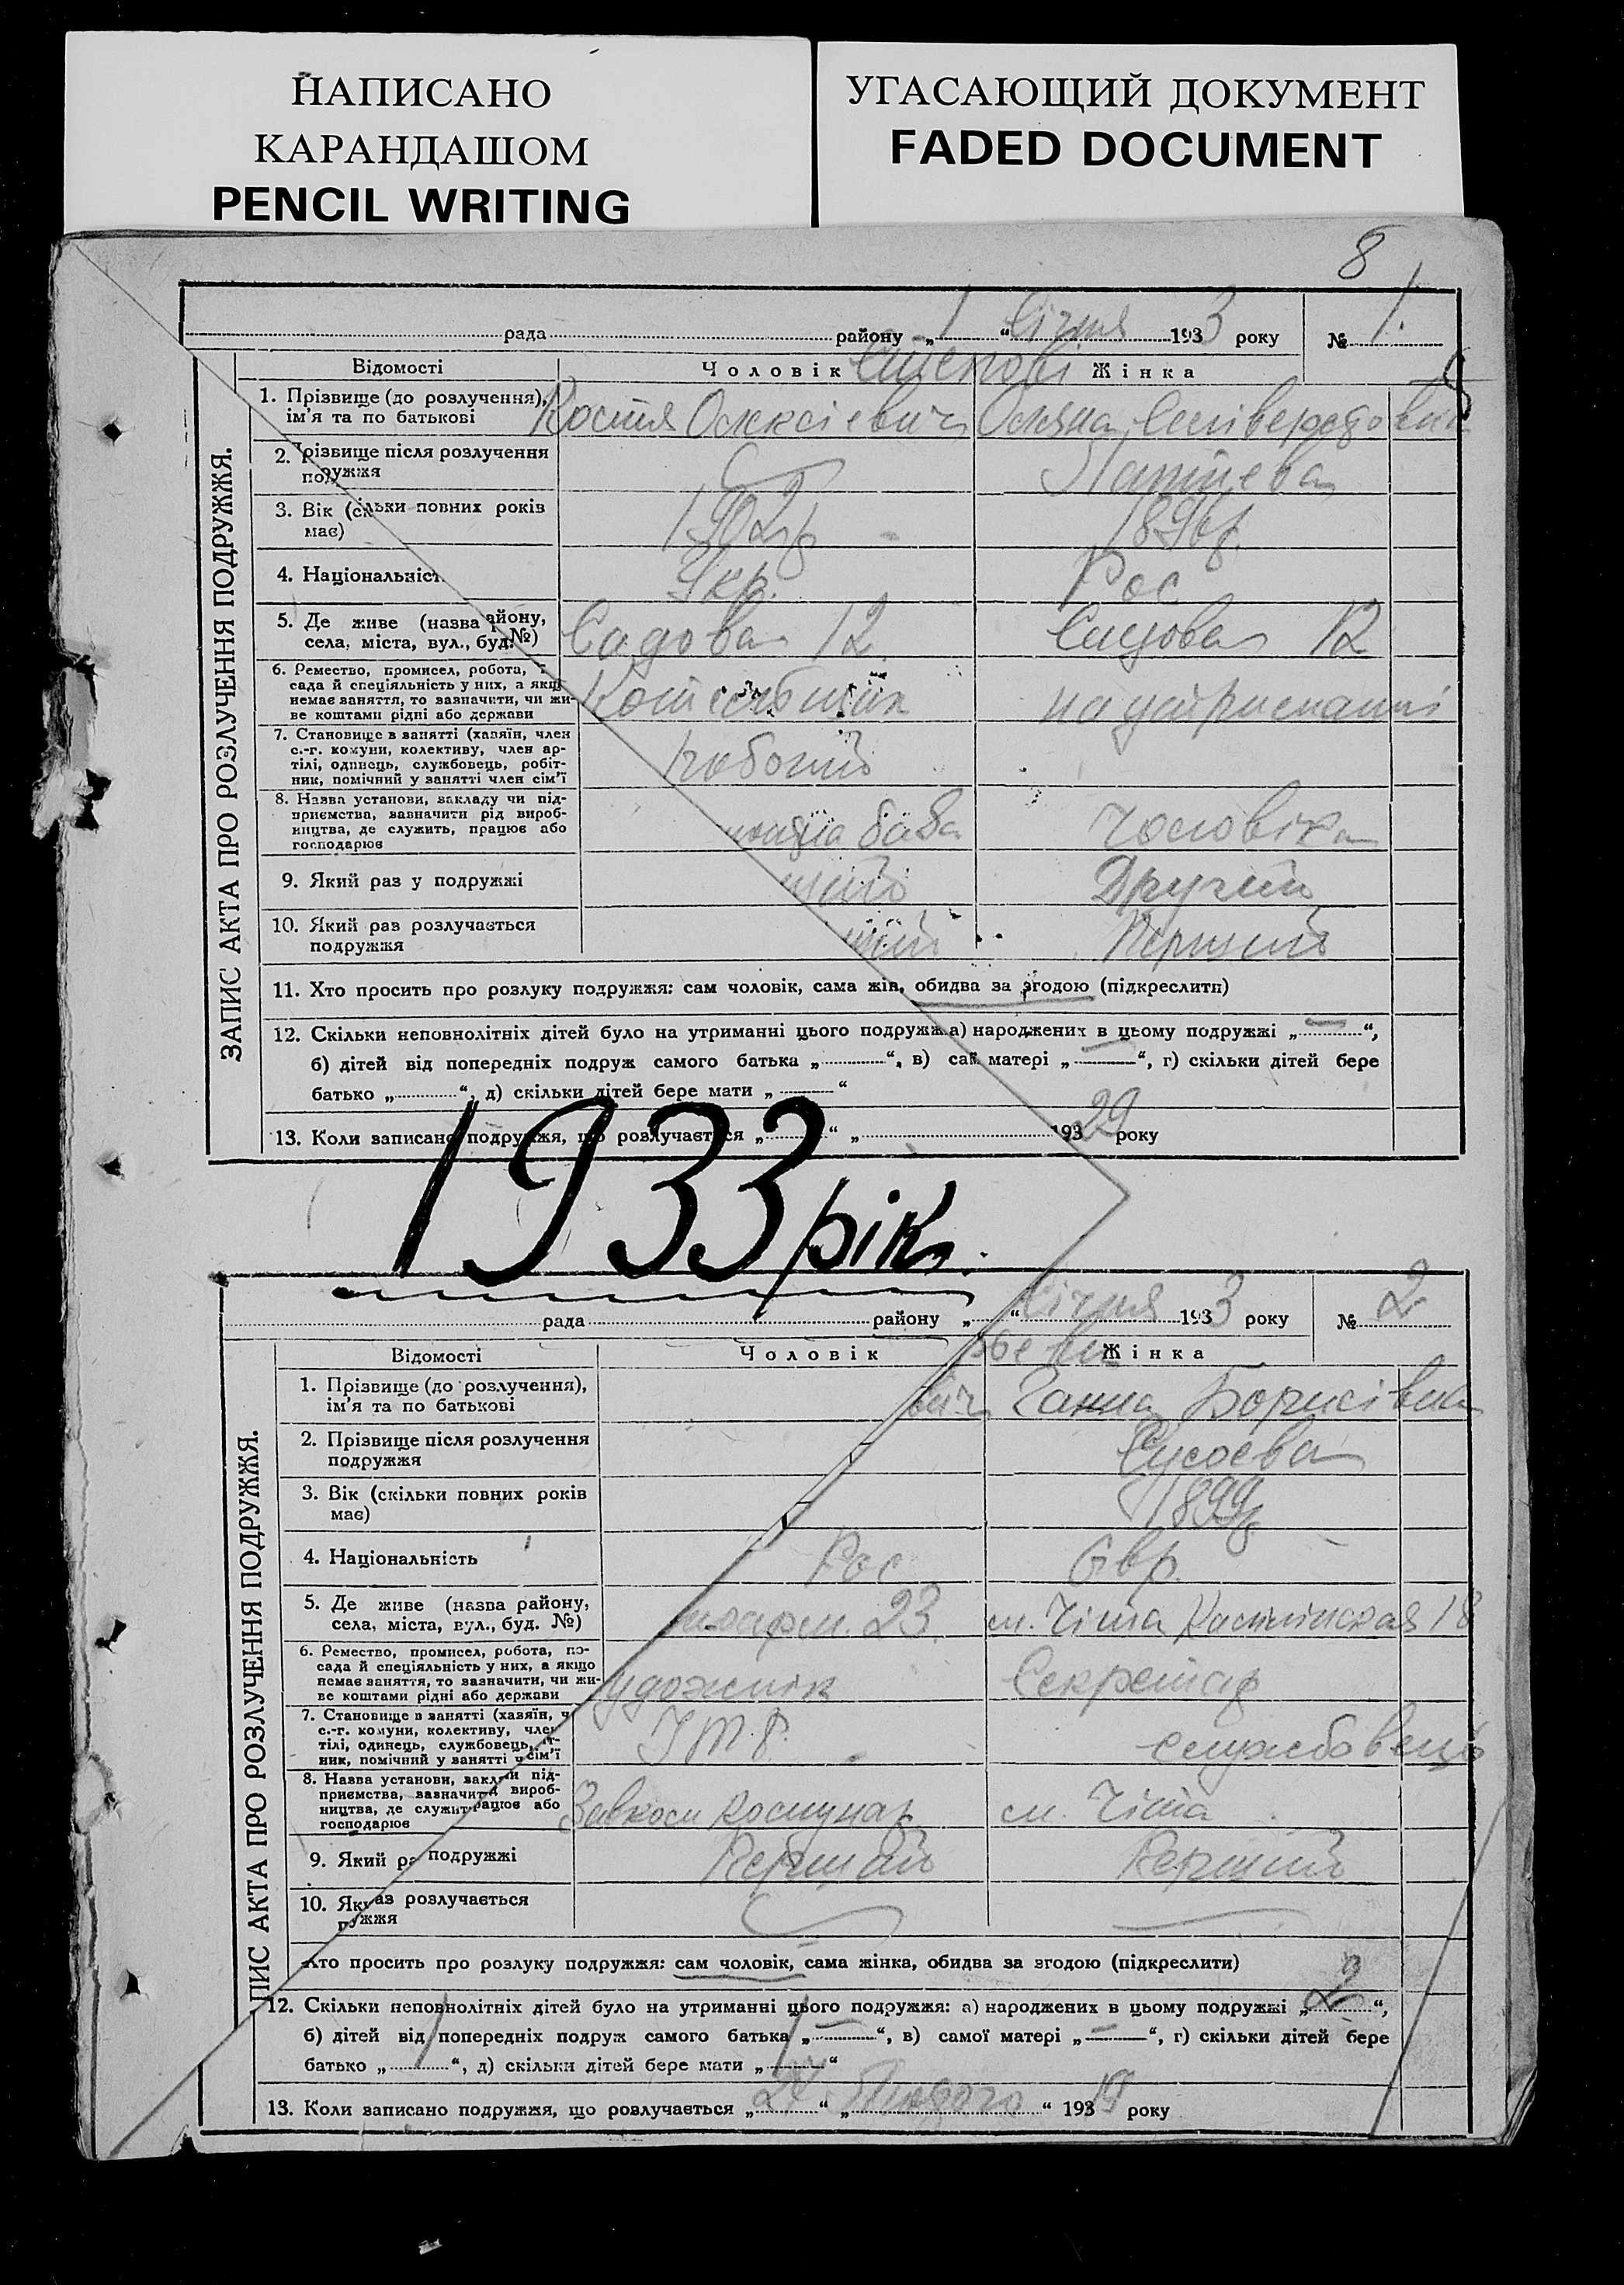 НАПИСАНО
КАРАНДАШОМ
PENCIL WRITING
УГАСАЮЩИЙ ДОКУМЕНТ
FADED DOCUMENT
8
рада району „ 1 “ Січня 1933 року № 1.
Відомості Чоловік Жінка
ЗАПИС АКТА ПРО РОЗЛУЧЕННЯ ПОДРУЖЖЯ.
1. Прізвище (до розлучення),
ім'я та по батькові
Костя Олексієвич
2. Прізвище після розлучення
подружжя
3. Вік (скільки повних років
має)
1902 р 1896 р.
4. Національніст
Укр. Рос
5. Де живе (назва айону,
села, міста, вул., буд. №)
Садова 12 Садова 12
6. Ремество, промисел, робота,
сада й спеціяльність у них, а якщ
немає заняття, то зазначити, чи жи-
ве коштами рідні або держави
на утриманні
7. Становище в занятті (хазяїн, член
с.-г. комуни, колективу, член ар-
тілі, одинець, службовець, робіт-
ник, помічний у занятті член сім'ї
робочий
8. Назва установи, закладу чи під-
приємства, зазначити рід вироб-
ництва, де служить, працює або
господарює
база Чоловіка
9. Який раз у подружжі
Другий
10. Який раз розлучається
подружжя
Перший
11. Хто просить про розлуку подружжя: сам чоловік, сама жін, обидва за згодою (підкреслити)
12. Скільки неповнолітніх дітей було на утриманні цього подружж а) народжених в цьому подружжі „ — “,
б) дітей від попередніх подруж самого батька „ “, в) сам матері „ — “, г) скільки дітей бере
батько „ “, д) скільки дітей бере мати „ “
13. Коли записано подружжя, що розлучається „ “ „ 193 29 року
1933 рік.
рада району „ “ Січня 1933 року № 2
Відомості Чоловік Жінка
ПИС АКТА ПРО РОЗЛУЧЕННЯ ПОДРУЖЖЯ.
1. Прізвище (до розлучення),
ім'я та по батькові
вич Ганна Борисівна
2. Прізвище після розлучення
подружжя
Сусоєва
3. Вік (скільки повних років
має)
1899 р
4. Національність
Рос Євр.
5. Де живе (назва району,
села, міста, вул., буд. №)
23. м. Чіта 18
6. Ремество, промисел, робота, по-
сада й спеціяльність у них, а якщо
немає заняття, то зазначити, чи жи-
ве коштами рідні або держави
удожник Секретар
7. Становище в занятті (хазяїн, ч
с.-г. комуни, колективу, член
тілі, одинець, службовець, іт-
ник, помічний у занятті ч сім'ї
ІТР. службовець
8. Назва установи, закла и під-
приємства, зазначити д вироб-
ництва, де служит рацює або
господарює
Завком Комунар м. Чіта
9. Який ра подружжі
Перший Перший
10. Як раз розлучається
п ужжя
Хто просить про розлуку подружжя: сам чоловік, сама жінка, обидва за згодою (підкреслити)
12. Скільки неповнолітніх дітей було на утриманні цього подружжя: а) народжених в цьому подружжі „ 2 “,
б) дітей від попередніх подруж самого батька „ — “, в) самої матері „ — “, г) скільки дітей бере
батько „ 1 “, д) скільки дітей бере мати „ 1 “
13. Коли записано подружжя, що розлучається „ “ „ Лютого “ 193 року